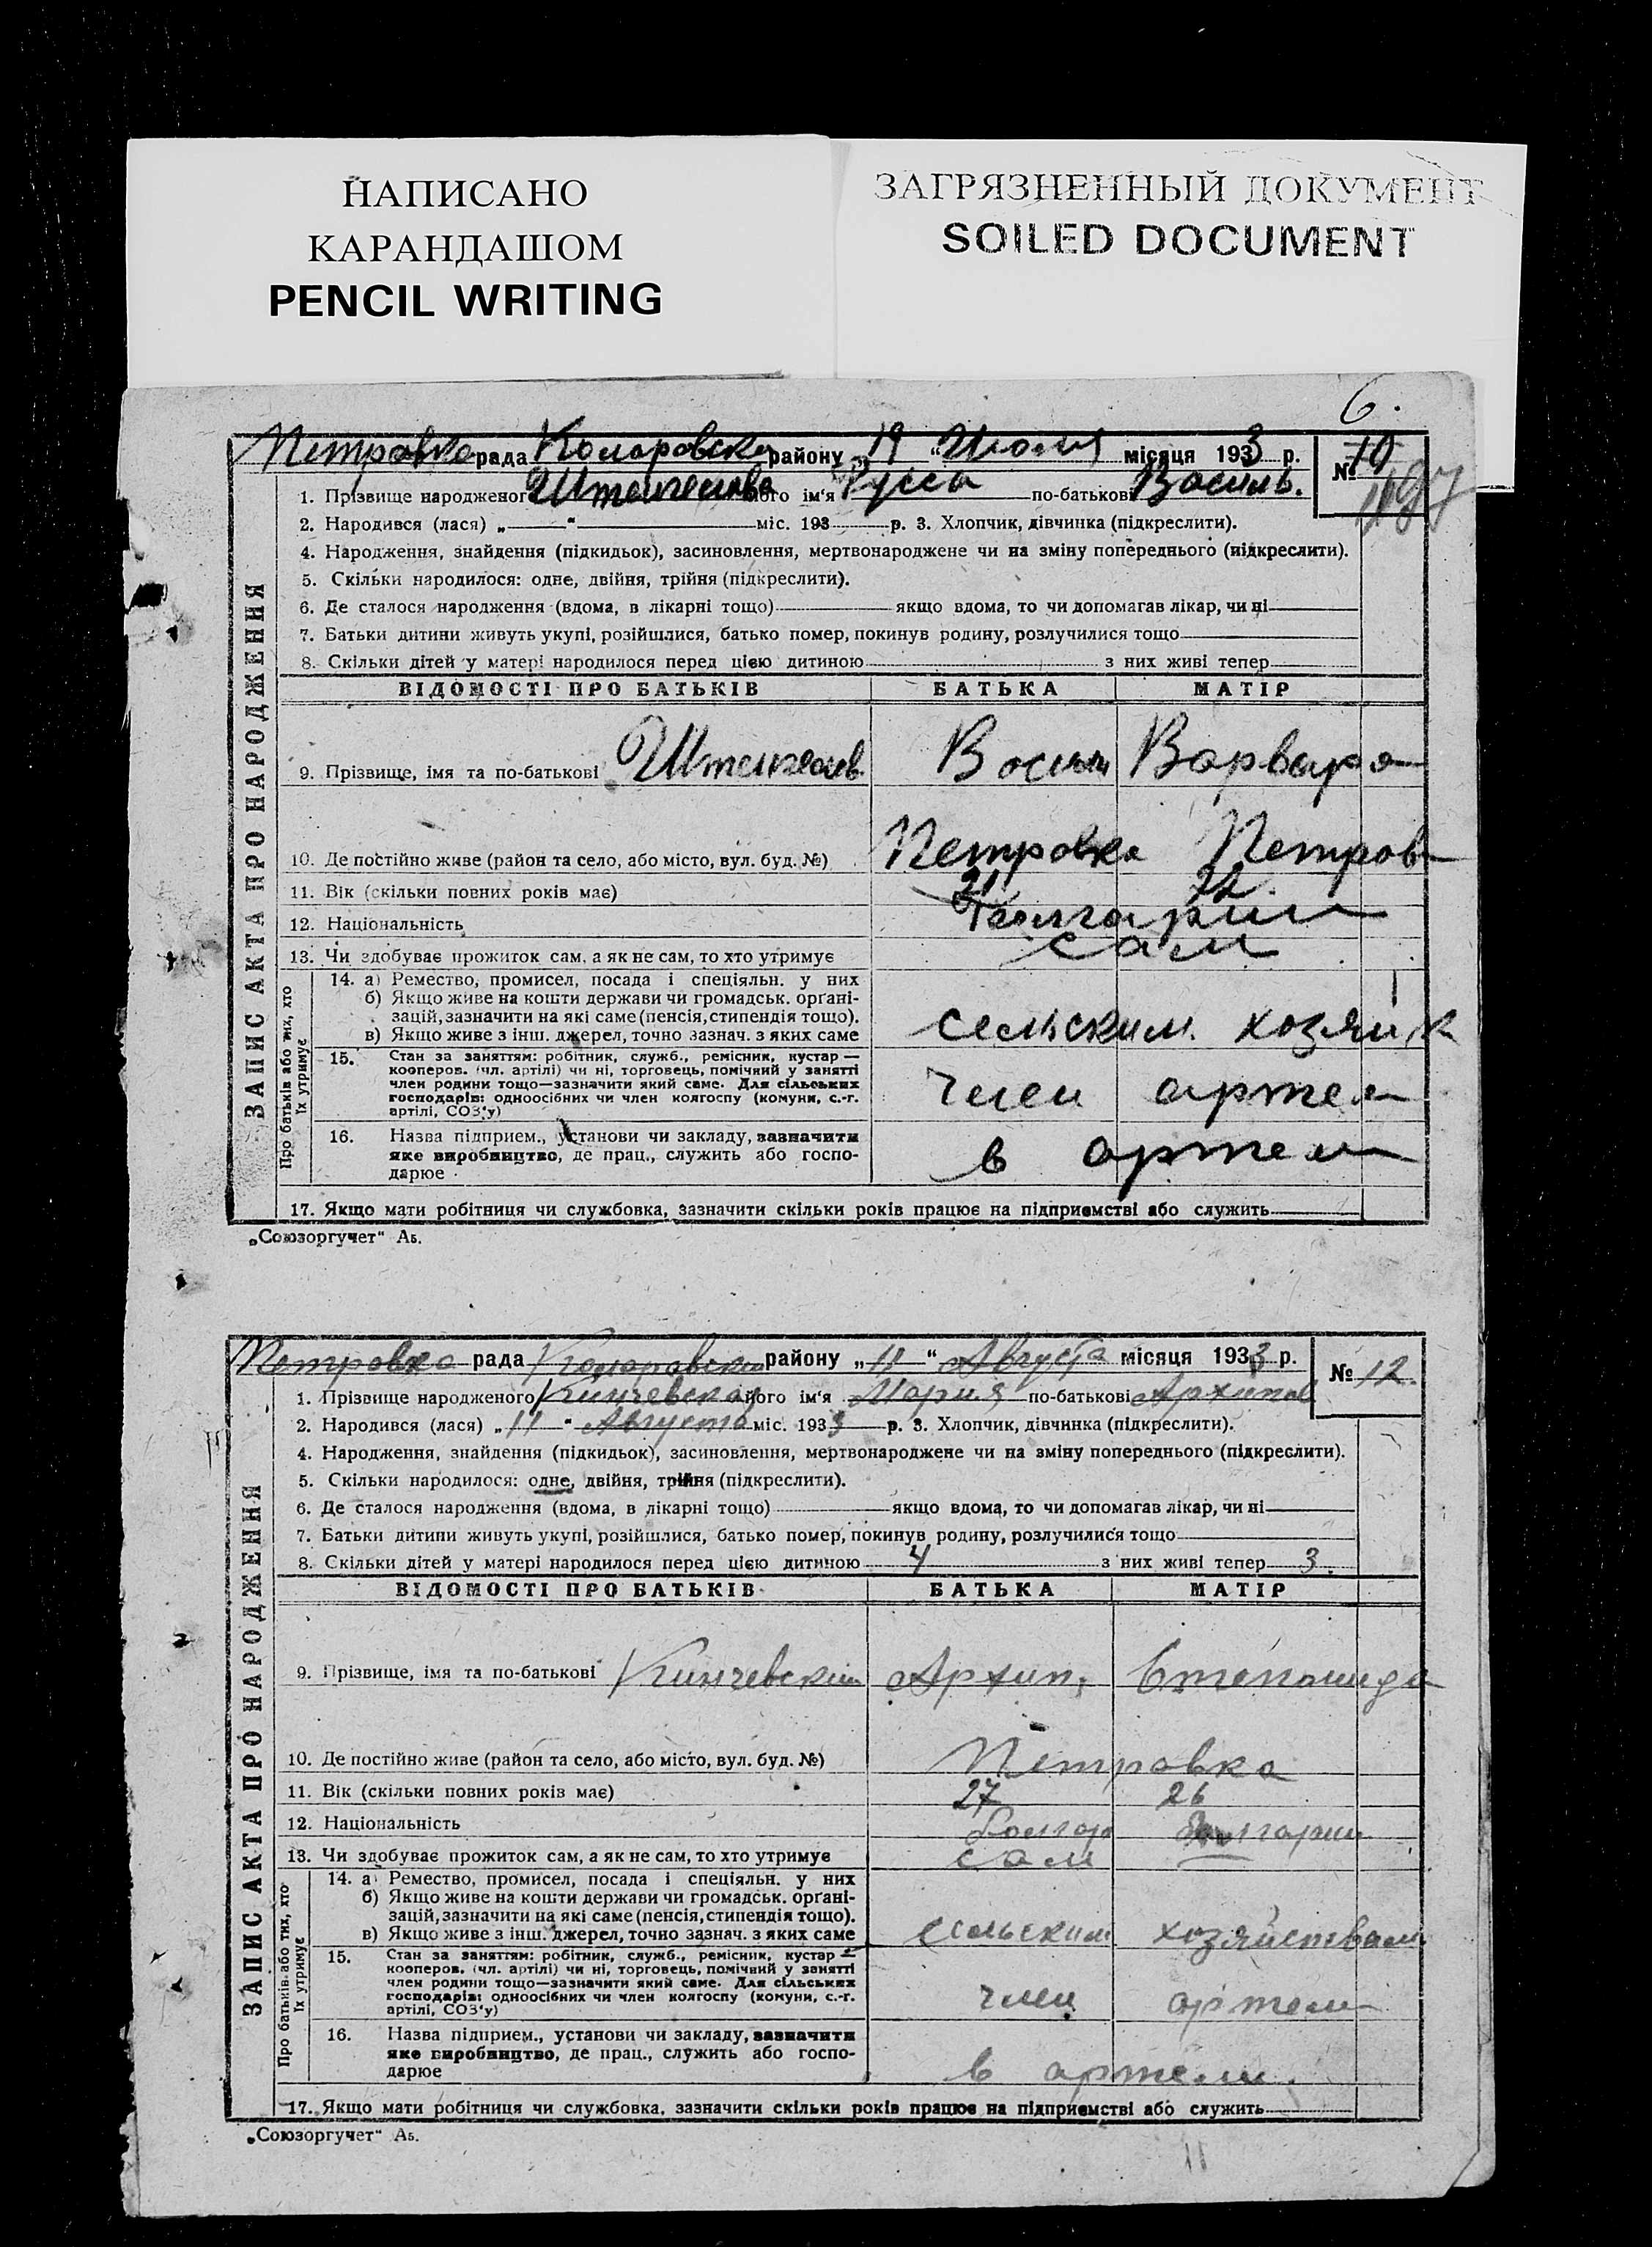 НАПИСАНО
КАРАНДАШОМ
PENCIL WRITING
ЗАГРЯЗНЕННЫЙ ДОКУМЕНТ
SOILED DOCUMENT
6.
Петровка рада Коларовско району „19“ Июля місяця 1933 р. № 10
1. Прізвище народженого його ім'я Русса по-батькові Василь.
2. Народився (лася) „ “ міс. 193 р. 3. Хлопчик, дівчинка (підкреслити).
4. Народження, знайдення (підкидьок), засиновлення, мертвонароджене чи на зміну попереднього (підкреслити).
5. Скільки народилося: одне, двійня, трійня (підкреслити).
6. Де сталося народження (вдома, в лікарні тощо) якщо вдома, то чи допомагав лікар, чи ні
7. Батьки дитини живуть укупі, розійшлися, батько помер, покинув родину, розлучилися тощо
8. Скільки дітей у матері народилося перед цією дитиною з них живі тепер
ЗАПИС АКТА ПРО НАРОДЖЕННЯ
ВІДОМОСТІ ПРО БАТЬКІВ БАТЬКА МАТІР
9. Прізвище, імя та по-батькові Васил Варвара
10. Де постійно живе (район та село, або місто, вул. буд. №) Петровка Петров
11. Вік (скільки повних років має) 21
12. Національність
13. Чи здобуває прожиток сам, а як не сам, то хто утримує сам
Про батьків або тих, хто їх утримує
14. а) Ремество, промисел, посада і спеціяльн. у них
б) Якщо живе на кошти держави чи громадськ. органі-
зацій, зазначити на які саме (пенсія, стипендія тощо).
в) Якщо живе з інш. джерел, точно зазнач. з яких саме сельским хозяй
15. Стан за заняттям: робітник, служб., ремісник, кустар —
кооперов. (чл. артілі) чи ні, торговець, помічний у занятті
член родини тощо—зазначити який саме. Для сільських
господарів: одноосібних чи член колгоспу (комуни, с.-г.
артілі, СОЗ'у) член артели
16. Назва підприєм., установи чи закладу, зазначити
яке виробництво, де прац., служить або госпо-
дарює в артели
17. Якщо мати робітниця чи службовка, зазначити скільки років працює на підприємстві або служить
„Союзоргучет“ Аб.
Петровка рада Коларовски району „11“ Августа місяця 1933 р. № 12.
1. Прізвище народженого Кинчевская його ім'я Мария по-батькові Архипов
2. Народився (лася) „11“ Августа міс. 1933 р. 3. Хлопчик, дівчинка (підкреслити).
4. Народження, знайдення (підкидьок), засиновлення, мертвонароджене чи на зміну попереднього (підкреслити).
5. Скільки народилося: одне, двійня, трійня (підкреслити).
6. Де сталося народження (вдома, в лікарні тощо) якщо вдома, то чи допомагав лікар, чи ні
7. Батьки дитини живуть укупі, розійшлися, батько помер, покинув родину, розлучилися тощо
8. Скільки дітей у матері народилося перед цією дитиною 4 з них живі тепер 3
ЗАПИС АКТА ПРО НАРОДЖЕННЯ
ВІДОМОСТІ ПРО БАТЬКІВ БАТЬКА МАТІР
9. Прізвище, імя та по-батькові Кинчевский Архип, Степонида
10. Де постійно живе (район та село, або місто, вул. буд. №) Петровка
11. Вік (скільки повних років має) 27 26
12. Національність болгар болгарин
13. Чи здобуває прожиток сам, а як не сам, то хто утримує сам
Про батьків або тих, хто їх утримує
14. а) Ремество, промисел, посада і спеціяльн. у них
б) Якщо живе на кошти держави чи громадськ. органі-
зацій, зазначити на які саме (пенсія, стипендія тощо).
в) Якщо живе з інш. джерел, точно зазнач. з яких саме сельским хозяйством
15. Стан за заняттям: робітник, служб., ремісник, кустар —
кооперов. (чл. артілі) чи ні, торговець, помічний у занятті
член родини тощо—зазначити який саме. Для сільських
господарів: одноосібних чи член колгоспу (комуни, с.-г.
артілі, СОЗ'у) член артели
16. Назва підприєм., установи чи закладу, зазначити
яке виробництво, де прац., служить або госпо-
дарює в артели.
17. Якщо мати робітниця чи службовка, зазначити скільки років працює на підприємстві або служить
„Союзоргучет“ Аб.